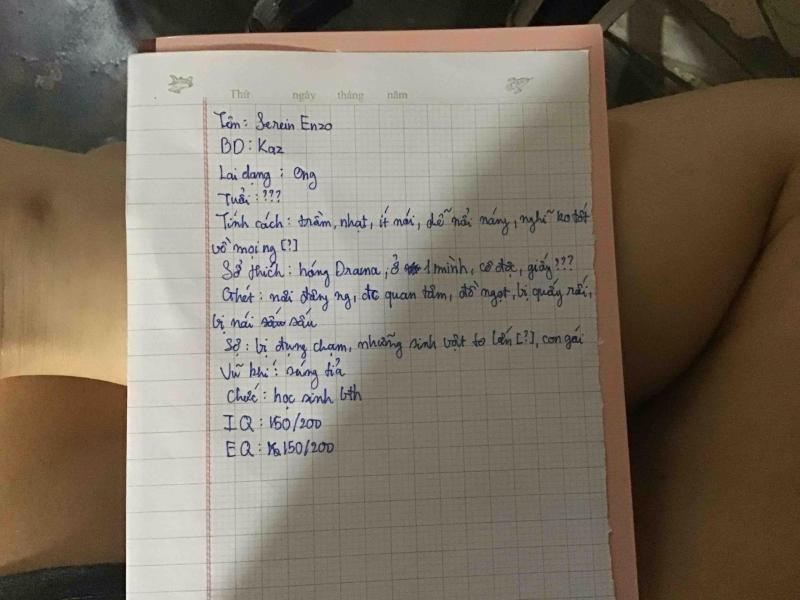 Thứ ngày tháng năm
Tên: Serein Enzo
BD: Kaz
Lai dạng: Ong
Tuổi: ???
Tính cách: trầm, nhạt, ít nói, dễ nổi nóng, nghĩ ko tốt
về mọi ng [?]
Sở thích: hóng Drama, ở 1 mình, cô độc, giấy???
Ghét: nơi đông ng, đc quan tâm, đồ ngọt, bị quấy rối,
bị nói xấu
Sợ: bị đụng chạm, những sinh vật to lớn [?], con gái
Vũ khí: súng tỉa
Chức: học sinh bth
IQ: 150/200
EQ: 150/200